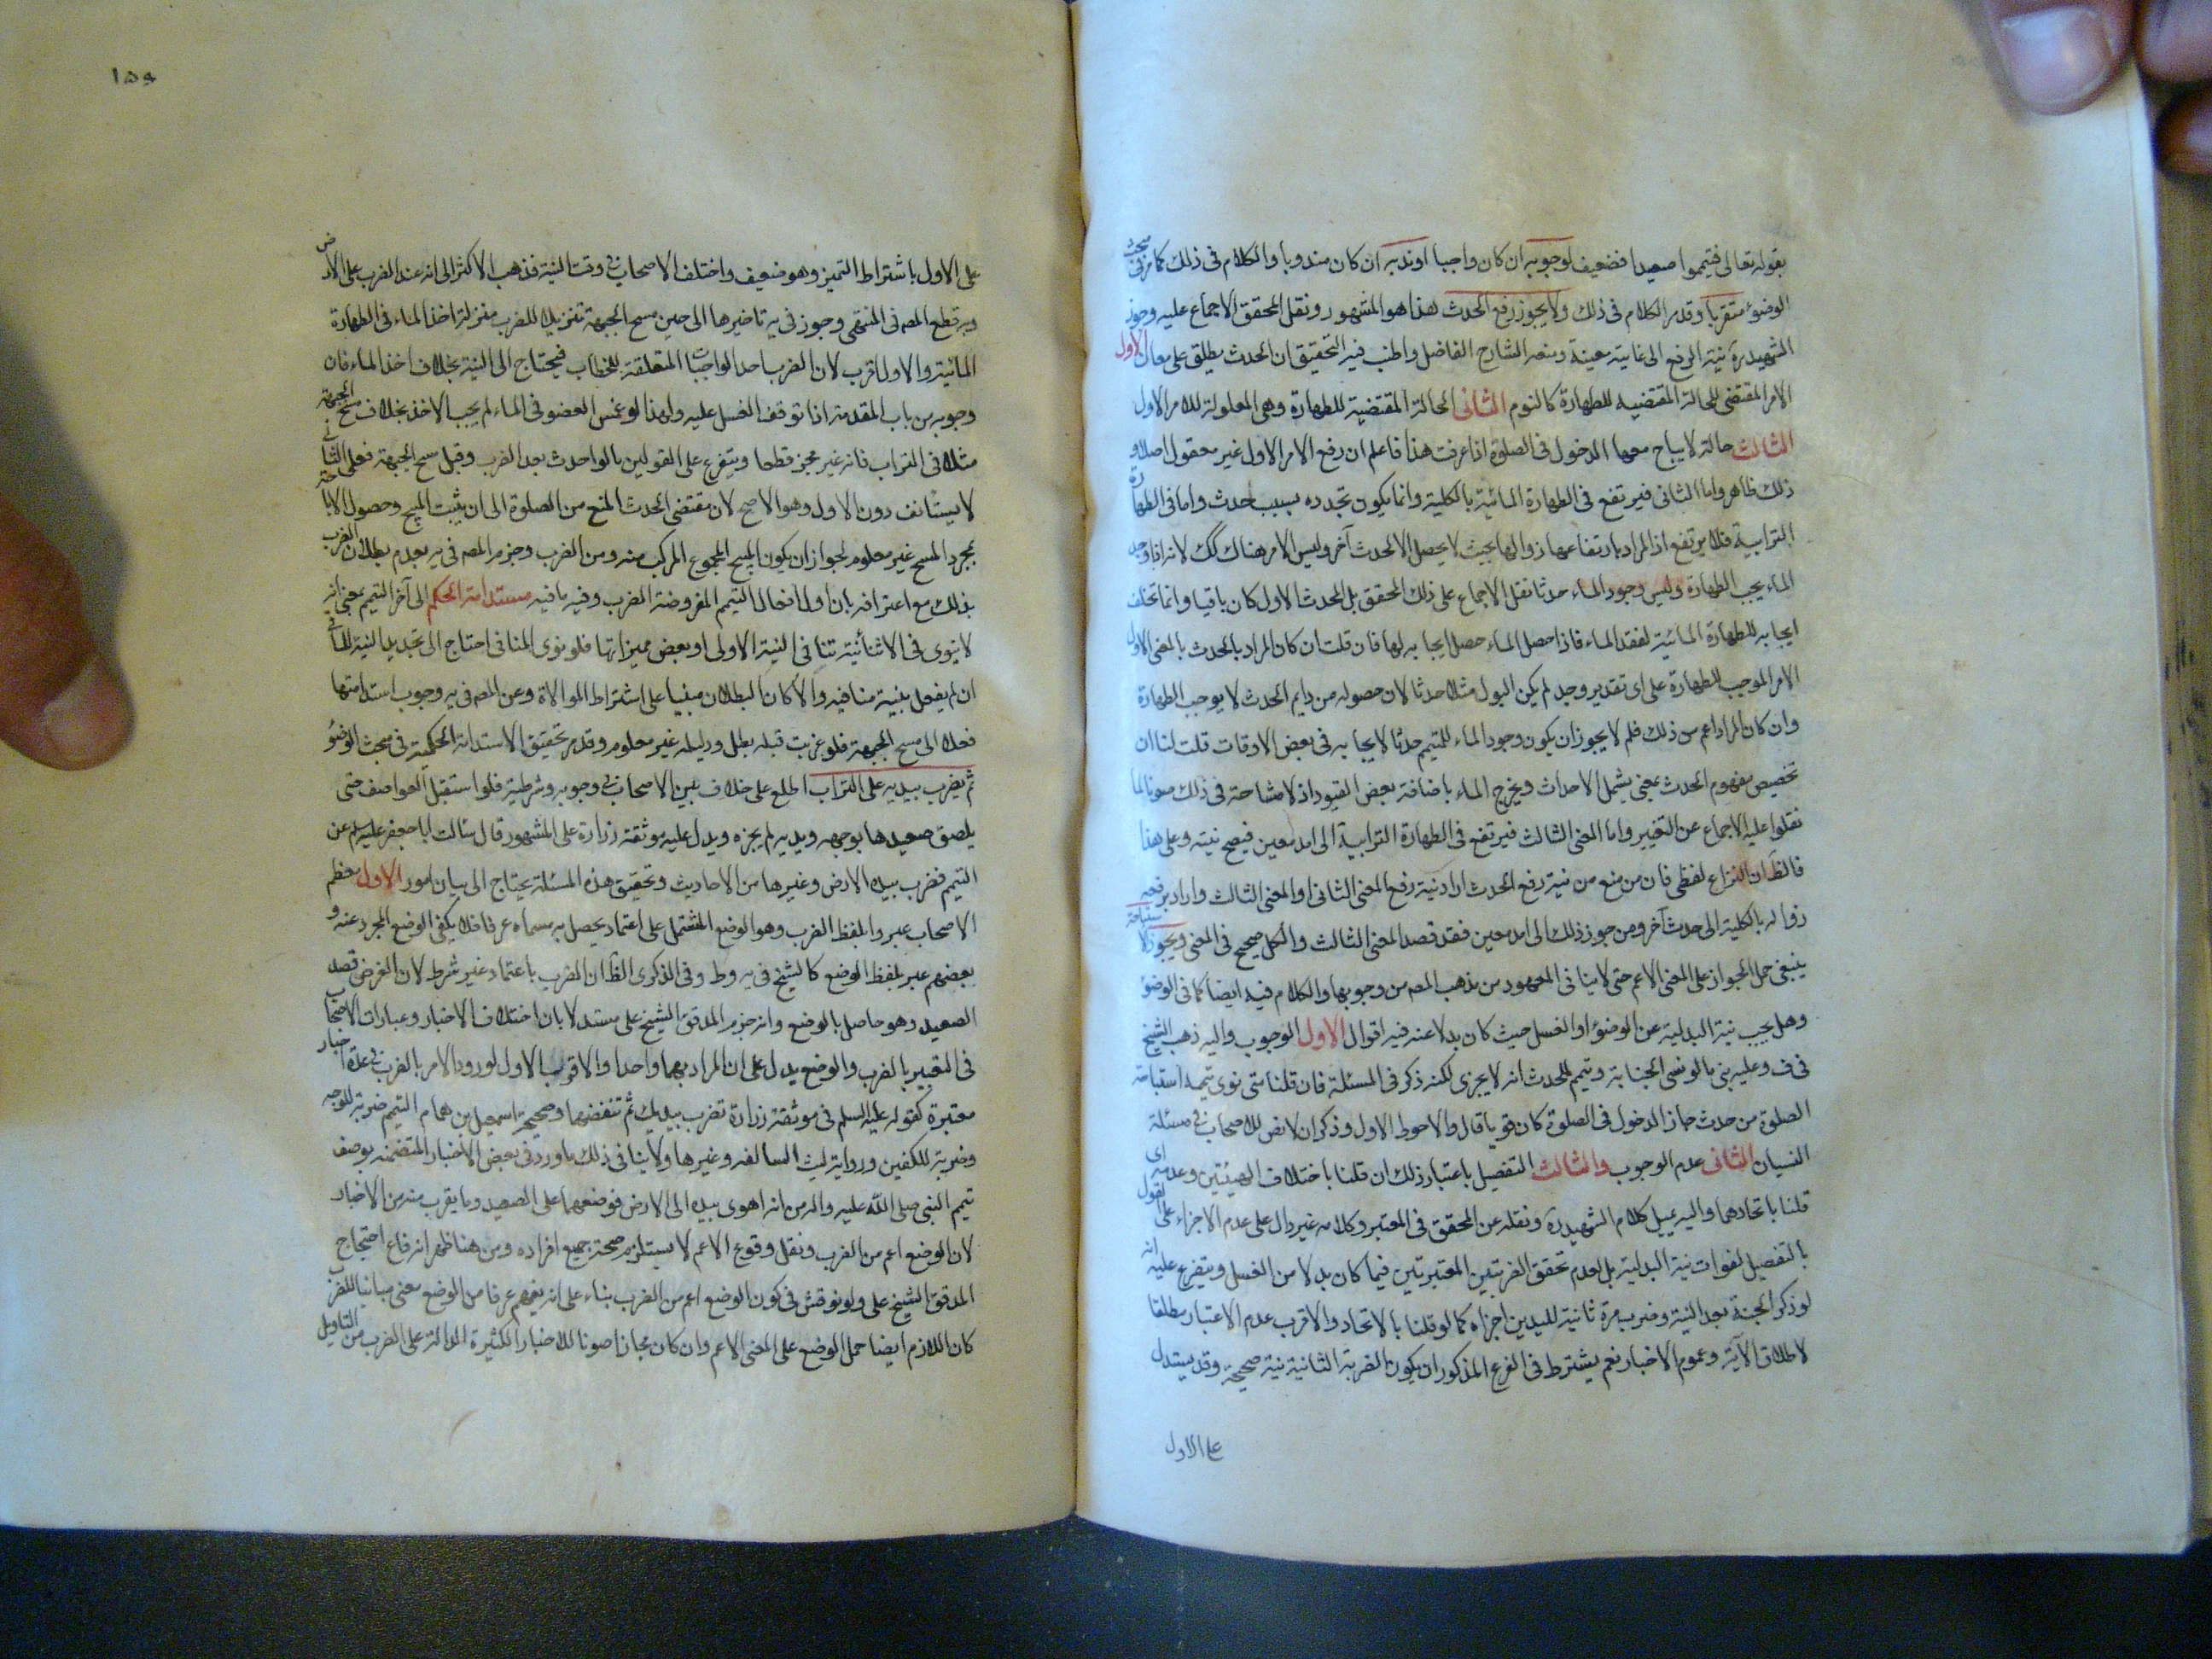 بقوله تعالى فتيمموا صعيدا فضعيف لوجوبه ان كان واجبا او ندبه ان كان مندوبا والكلام فى ذلك كما مر فى مبحث
الوضوء متقربا وقد مر الكلام فى ذلك ولا يجوز رفع الحدث هذا هو المشهور ونقل المحقق الاجماع عليه وجوز
الشهيد ره نية الرفع الى غاية معينة ونصره الشارح الفاضل واطنب فيه التحقيق ان الحدث يطلق على معان الاول
الامر المقتضى للحالة المقتضيه للطهارة كالنوم الثانى الحالة المقتضية للطهارة وهى المعلولة للامر الاول
الثالث حالة لا يباح معها الدخول فى الصلوة اذا عرفت هذا فاعلم ان رفع الامر الاول غير معقول اصلا و
ذلك ظاهر واما الثانى فيرتفع فى الطهارة المائية بالكلية وانما يكون تجدده بسبب حدث واما فى الطهارة
الترابية فلا يرتفع اذ المراد بارتفاعها زوالها بحيث لا يحصل الا لحدث آخر وليس الامر هناك كك لانه اذا وجد
الماء يجب الطهارة وليس وجود الماء حدثا نقل الاجماع على ذلك المحقق بل الحدث الاول كان باقيا وانما تخلف
ايجابه للطهارة المائية لفقد الماء فاذا حصل الماء حصل ايجابه لها فان قلت ان كان المراد بالحدث بالمعنى الاول
الامر الموجب للطهارة على اى تقدير وجد لم يكن البول مثلا حدثا لان حصوله من دايم الحدث لا يوجب الطهارة
وان كان المراد اعم من ذلك فلم لا يجوز ان يكون وجود الماء للمتيمم حدثا لايجابه فى بعض الاوقات قلت لنا ان
تخصيص مفهوم الحدث بمعنى يشمل الاحداث ويخرج الماء باضافة بعض القيود اذ لا مشاحة فى ذلك صونا لما
نقلوا عليه الاجماع عن التغيير واما المعنى الثالث فيرتفع فى الطهارة الترابية الى امد معين فيصح نيته وعلى هذا
فالظ ان النزاع لفظى فان من منع من نية رفع الحدث اراد نية رفع المعنى الثانى او المعنى الثالث واراد برفعه
زواله بالكلية الى حدث آخر ومن جوز ذلك الى امد معين فقد قصد المعنى الثالث والكل صحيح فى المعنى ويجوز الاستباحة
ينبغى حمل الجواز على المعنى الاعم حتى لا ينافى المعهود من مذهب المص من وجوبها والكلام فيه ايضا كما فى الوضوء
وهل يجب نية البدلية عن الوضوء او الغسل حيث كان بدلا عنه فيه اقوال الاول الوجوب واليه ذهب الشيخ
فى ف وعليه بنى ما لو نسى الجنابة وتيمم للحدث انه لا يجزى لكنه ذكر فى المسئلة فان قلنا متى نوى تيممه استباحة
الصلوة من حدث جاز الدخول فى الصلوة كان قويا قال والاحوط الاول وذكر ان لا نص للاصحاب فى مسئلة
النسيان الثانى عدم الوجوب والثالث التفصيل باعتبار ذلك ان قلنا باختلاف الهيئتين وعدمه ان
قلنا باتحادهما واليه يميل كلام الشهيد ره ونقله عن المحقق فى المعتبر وكلامه غير دال على عدم الاجزاء على القول
بالتفصيل لفوات نية البدلية بل لعدم تحقق الضربتين المعتبرتين فيما كان بدلا من الغسل ويتفرع عليه انه
لو ذكر الجنابة بعد النية وضرب مرة ثانية لليدين اجزاه كما لو قلنا بالاتحاد والاقرب عدم الاعتبار مطلقا
لاطلاق الآية وعموم الاخبار نعم يشترط فى الفرع المذكور ان يكون الضربة الثانية نية صحيحة وقد يستدل
على الاول
١٥٩
على الاول باشتراط التميز وهو ضعيف واختلف الاصحاب فى وقت النية فذهب الاكثر الى انه عند الضرب على الارض
وبه قطع المص فى المنتهى وجوز فى يه تاخيرها الى حين مسح الجبهة تنزيلا للضرب منزلة اخذ الماء فى الطهارة
المائية والاول اقرب لان الضرب احد الواجبات المتعلقة للخطاب فيحتاج الى النية بخلاف اخذ الماء فان
وجوبه من باب المقدمة اذا توقف الغسل عليه ولهذا لو غمس العضو فى الماء لم يجب الاخذ بخلاف مسح الجبهة
مثلا فى التراب فانه غير مجز قطعا ويتفرع على القولين ما لو احدث بعد الضرب وقبل مسح الجبهة فعلى الثانى
لا يستانف دون الاول وهو الاصح لان مقتضى الحدث المنع من الصلوة الى ان يثبت المبيح وحصول الاباحة
بمجرد المسح غير معلوم لجواز ان يكون المبيح المجموع المركب منه ومن الضرب وجزم المص فى يه بعدم بطلان الضرب
بذلك مع اعترافه بان اول افعال التيمم المفروضة الضرب وفيه ما فيه مستدامة الحكم الى آخر التيمم بمعنى انه
لا ينوى فى الاثناء نية تنافى النية الاولى او بعض مميزاتها فلو نوى المنافى احتاج الى تجديد النية للباقى
ان لم يفعل بنية منافيه والا كان البطلان مبنيا على اشتراط الموالاة وعن المص فى يه وجوب استدامتها
فعلا الى مسح الجبهة فلو عزبت قبله بطل ودليله غير معلوم وقد مر تحقيق الاستدامة الحكمية فى مبحث الوضوء
ثم يضرب بيديه على التراب اطلع على خلاف بين الاصحاب فى وجوبه وشرطيته فلو استقبل العواصف حتى
يلصق صعيدها بوجهه ويديه لم يجزه ويدل عليه موثقة زرارة على المشهور قال سالت ابا جعفر عليه السلم عن
التيمم فضرب بيده الارض وغيرها من الاحاديث وتحقيق هذه المسئلة يحتاج الى بيان امور الاول معظم
الاصحاب عبروا بلفظ الضرب وهو الوضع المشتمل على اعتماد يحصل به مسماه عرفا فلا يكفى الوضع المجرد عنه و
بعضهم عبر بلفظ الوضع كالشيخ فى يه وط وفى الذكرى الظ ان الضرب باعتماد غير شرط لان الغرض قصد
الصعيد وهو حاصل بالوضع وانه جزم المدقق الشيخ على مستدلا بان اختلاف الاخبار وعبارات الاصحاب
فى التعبير بالضرب والوضع يدل على ان المراد بهما واحد والاقرب الاول لورود الامر بالضرب فى عدة اخبار
معتبرة كقوله عليه السلم فى موثقة زرارة تضرب بيديك ثم تنفضهما وصحيحة اسمعيل بن همام التيمم ضربة للوجه
وضربة للكفين ورواية ليث السالفه وغيرها ولا ينافى ذلك ما ورد فى بعض الأخبار المتضمنه بوصف
تيمم النبى صلى الله عليه واله من انه اهوى بيده الى الارض فوضعهما على الصعيد وما يقرب منه من الاخبار
لان الوضع اعم من الضرب ونقل وقوع الاعم لا يستلزم صحة جميع افراده ومن هنا ظهر اندفاع احتجاج
المدقق الشيخ على ولو نوقش فى كون الوضع اعم من الضرب بناء على انه يفهم عرفا من الوضع معنى مباينا للضرب
كان اللازم ايضا حمل الوضع على المعنى الاعم وان كان مجازا صونا للاخبار الكثيرة الدالة على الضرب من التاويل